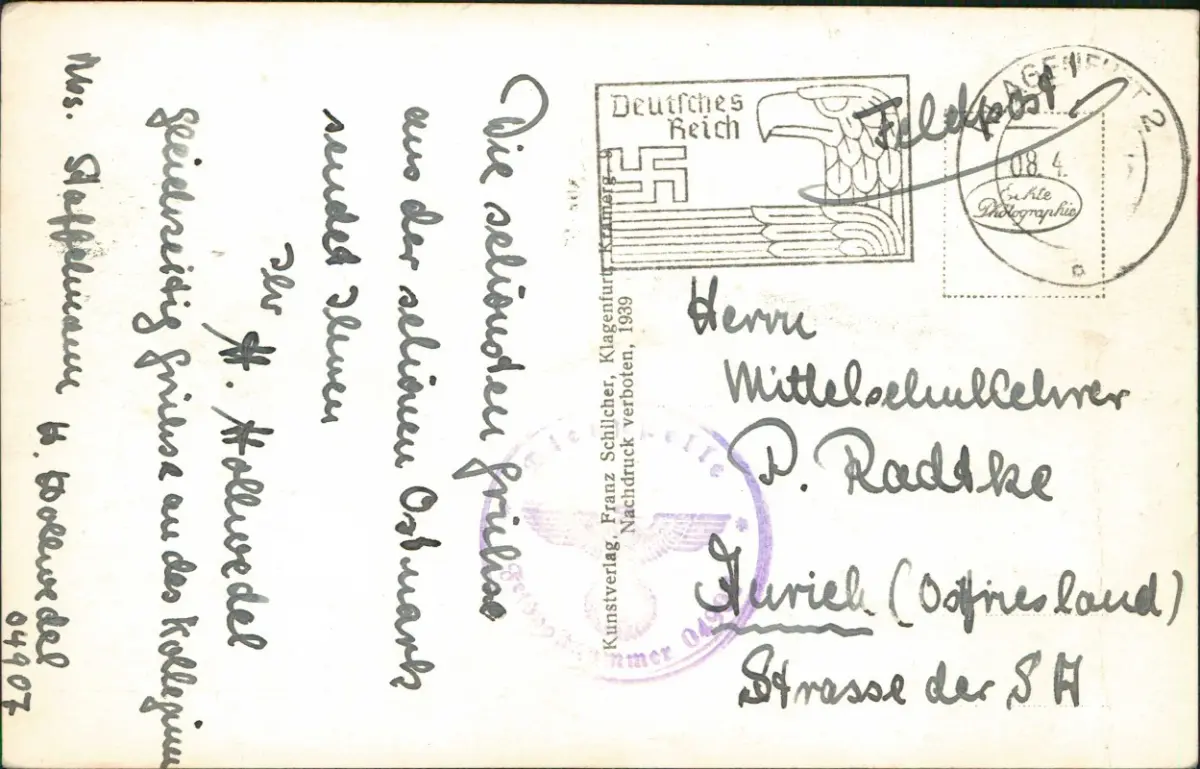 Die schönsten Grüße
aus der schönen Ostmark
sendet Ihnen
Ihr
H. Hollwedel
Gleichzeitig Grüße an das Kollegium
Abs. Staffelmann H. Hollwedel
04907
Kunstverlag, Franz Schilcher, Klagenfurt, Kramerg.
Nachdruck verboten, 1939
Deutsches
Reich
Feldpost!
KLAGENFURT 2
08.4.
Echte
Photographie
Herrn
Mittelschullehrer
P. Radtke
Aurich (Ostfriesland)
Strasse der SA
Briefstelle
Feldpostnummer